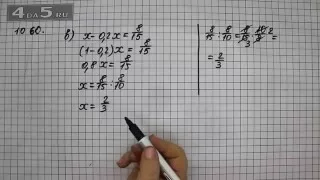 4DA5.RU
1060.
в) x-0,2x=8/15
(1-0,2)x=8/15
0,8x=8/15
x=8/15:8/10
x=2/3
8/15:8/10=8/15 3·10/8 2=
=2/3